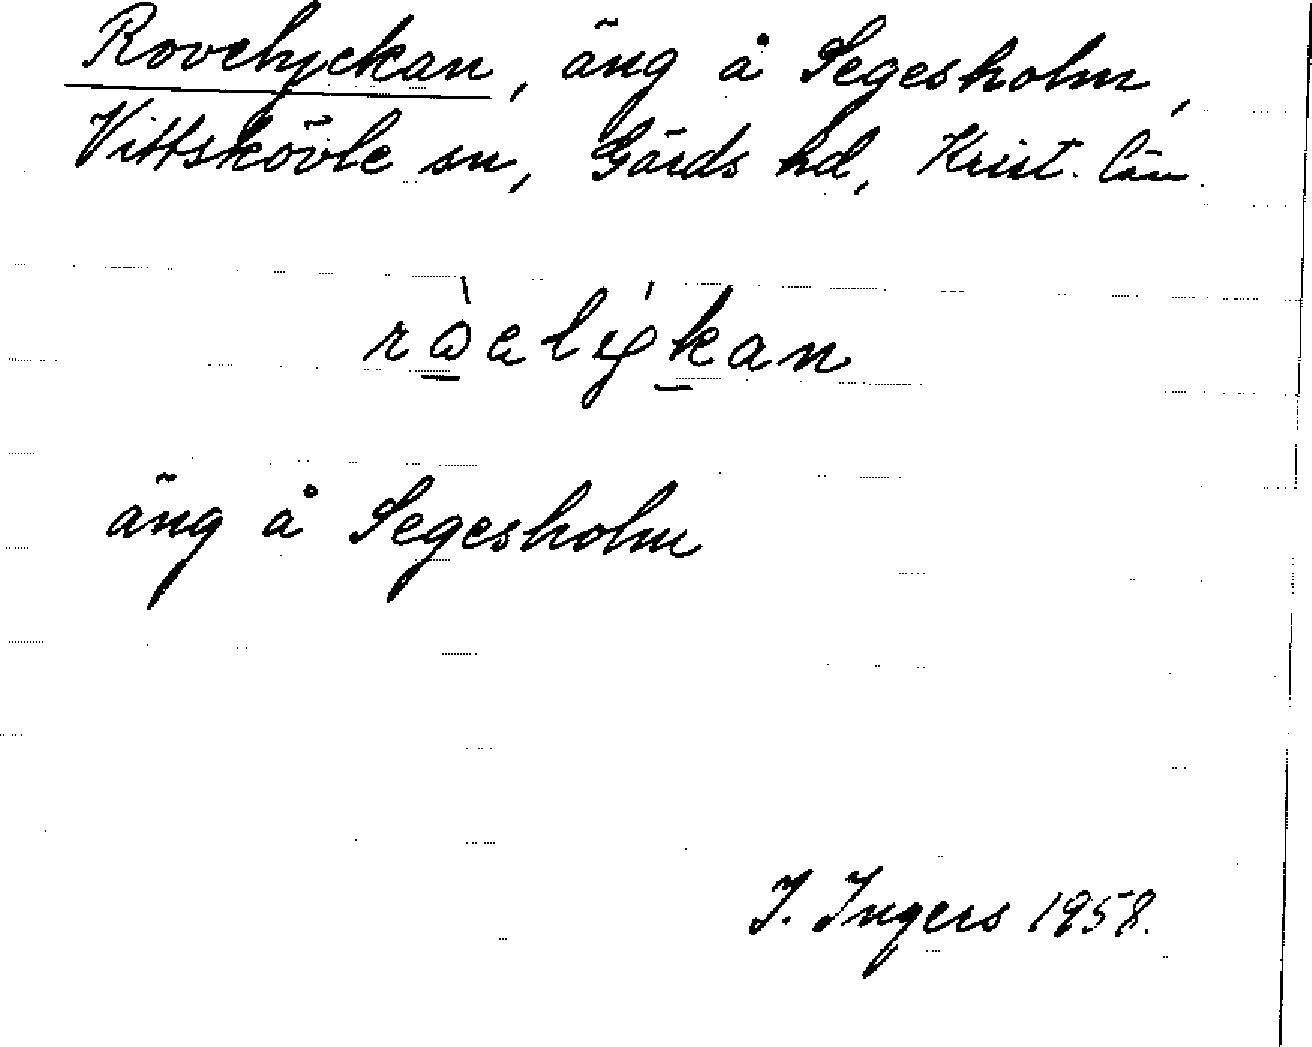 Rovelyckan, äng å Segesholm,
Vittskövle sn, Gärds hd, Krist. län.
äng å Segesholm
I. Ingers 1958.